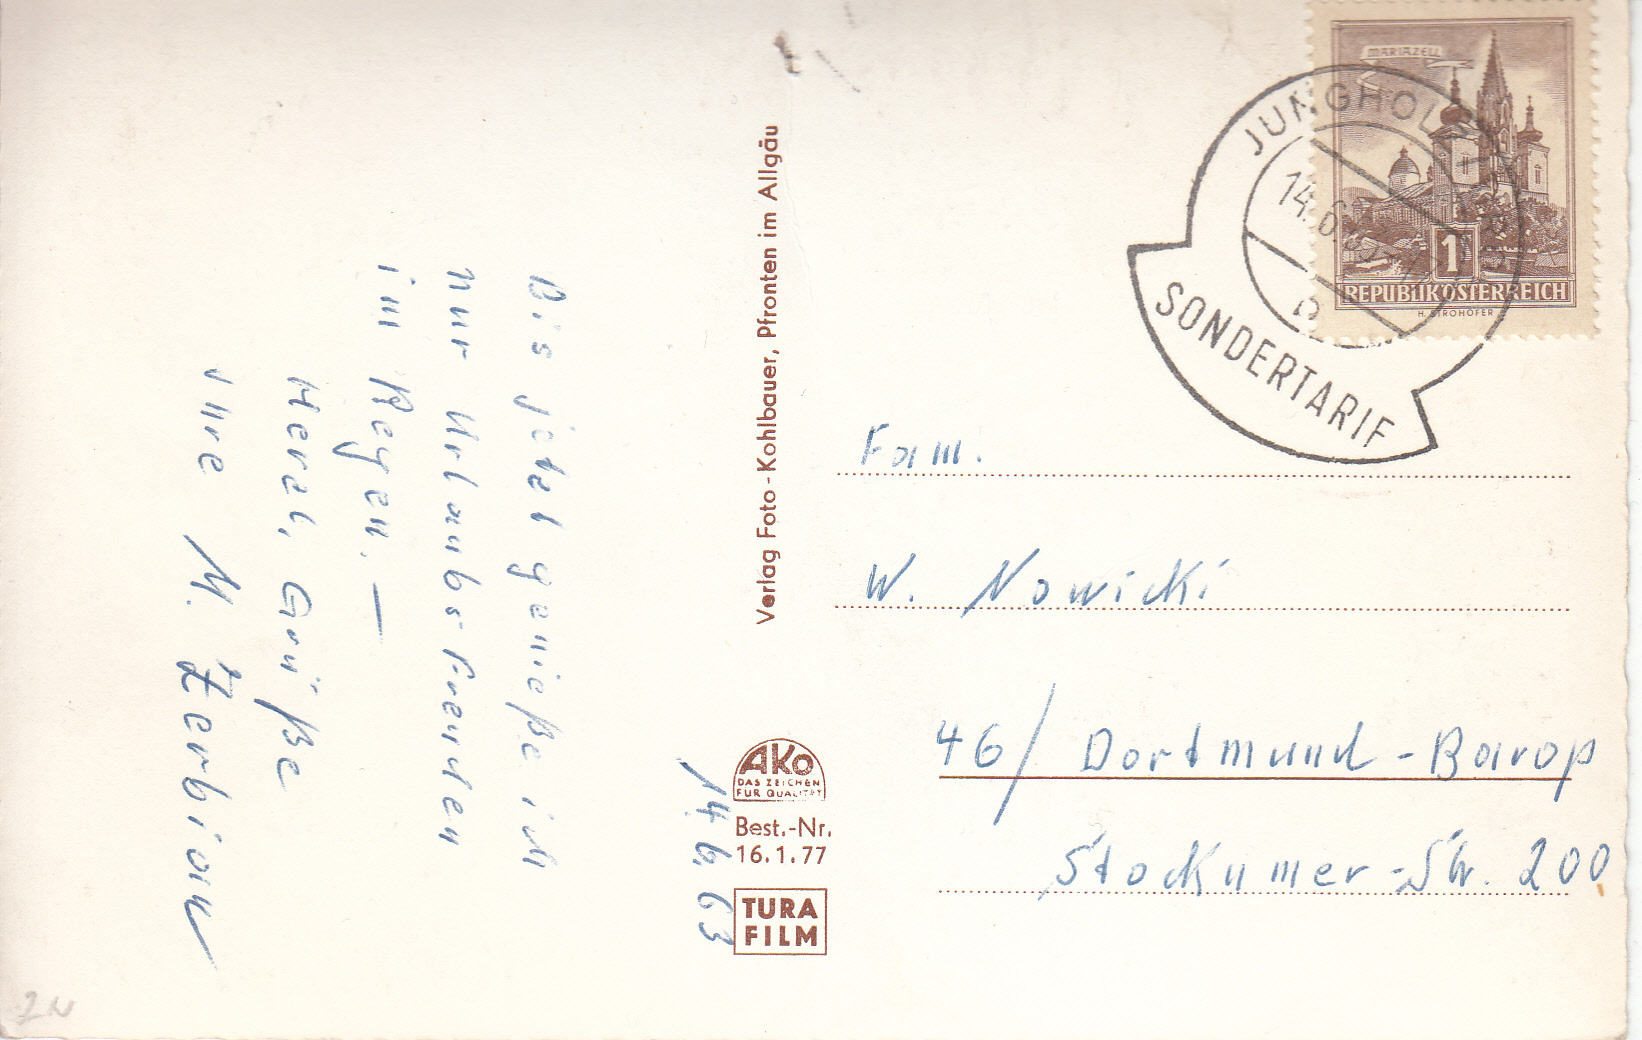 14.6.63
Bis jetzt genieße ich
nur Urlaubsfreuden
im Regen. —
Herzl. Grüße
Ihre M. Zerbian
Verlag Foto-Kohlbauer, Pfronten im Allgäu
AKO
DAS ZEICHEN
FÜR QUALITÄT
Best.-Nr.
16.1.77
TURA
FILM
MARIAZELL
1
REPUBLIK ÖSTERREICH
H. STROHOFER
JUNGHOLZ
14.6.
SONDERTARIF
Fam.
W. Nowicki
46/ Dortmund-Barop
Stockumer-Str. 200